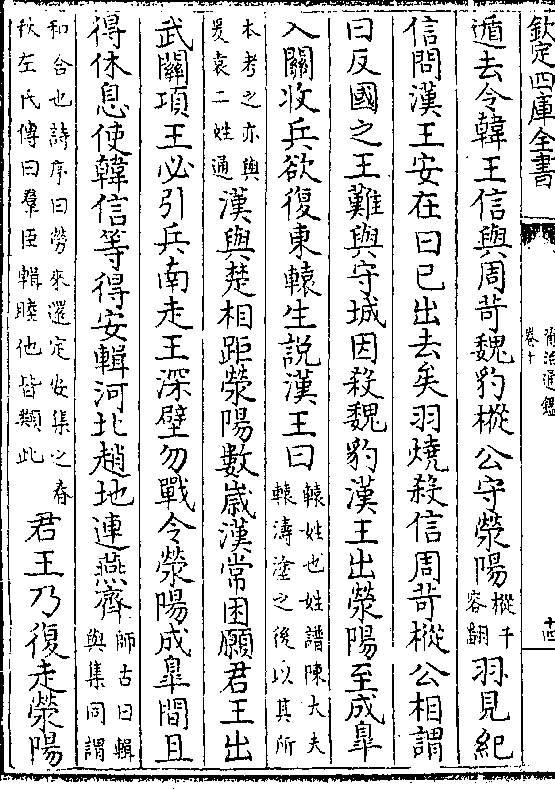 欽定四庫全書
資治通鑑
卷十
十四
遁去令韓王信與周苛魏豹樅公守滎陽樅千容翻羽見紀
信問漢王安在曰已出去矣羽燒殺信周苛樅公相謂
曰反國之王難與守城因殺魏豹漢王出滎陽至成臯
入關收兵欲復東轅生說漢王曰轅姓也姓譜陳大夫轅濤塗之後以其所
本考之亦與爰袁二姓通漢與楚相距滎陽數嵗漢常困願君王出
武關項王必引兵南走王深壁勿戰令滎陽成臯間且
得休息使韓信等得安輯河北趙地連燕齊師古曰輯與集同謂
和合也詩序曰勞來還定安集之春秋左氏傳曰羣臣輯睦他皆類此君王乃復走滎陽